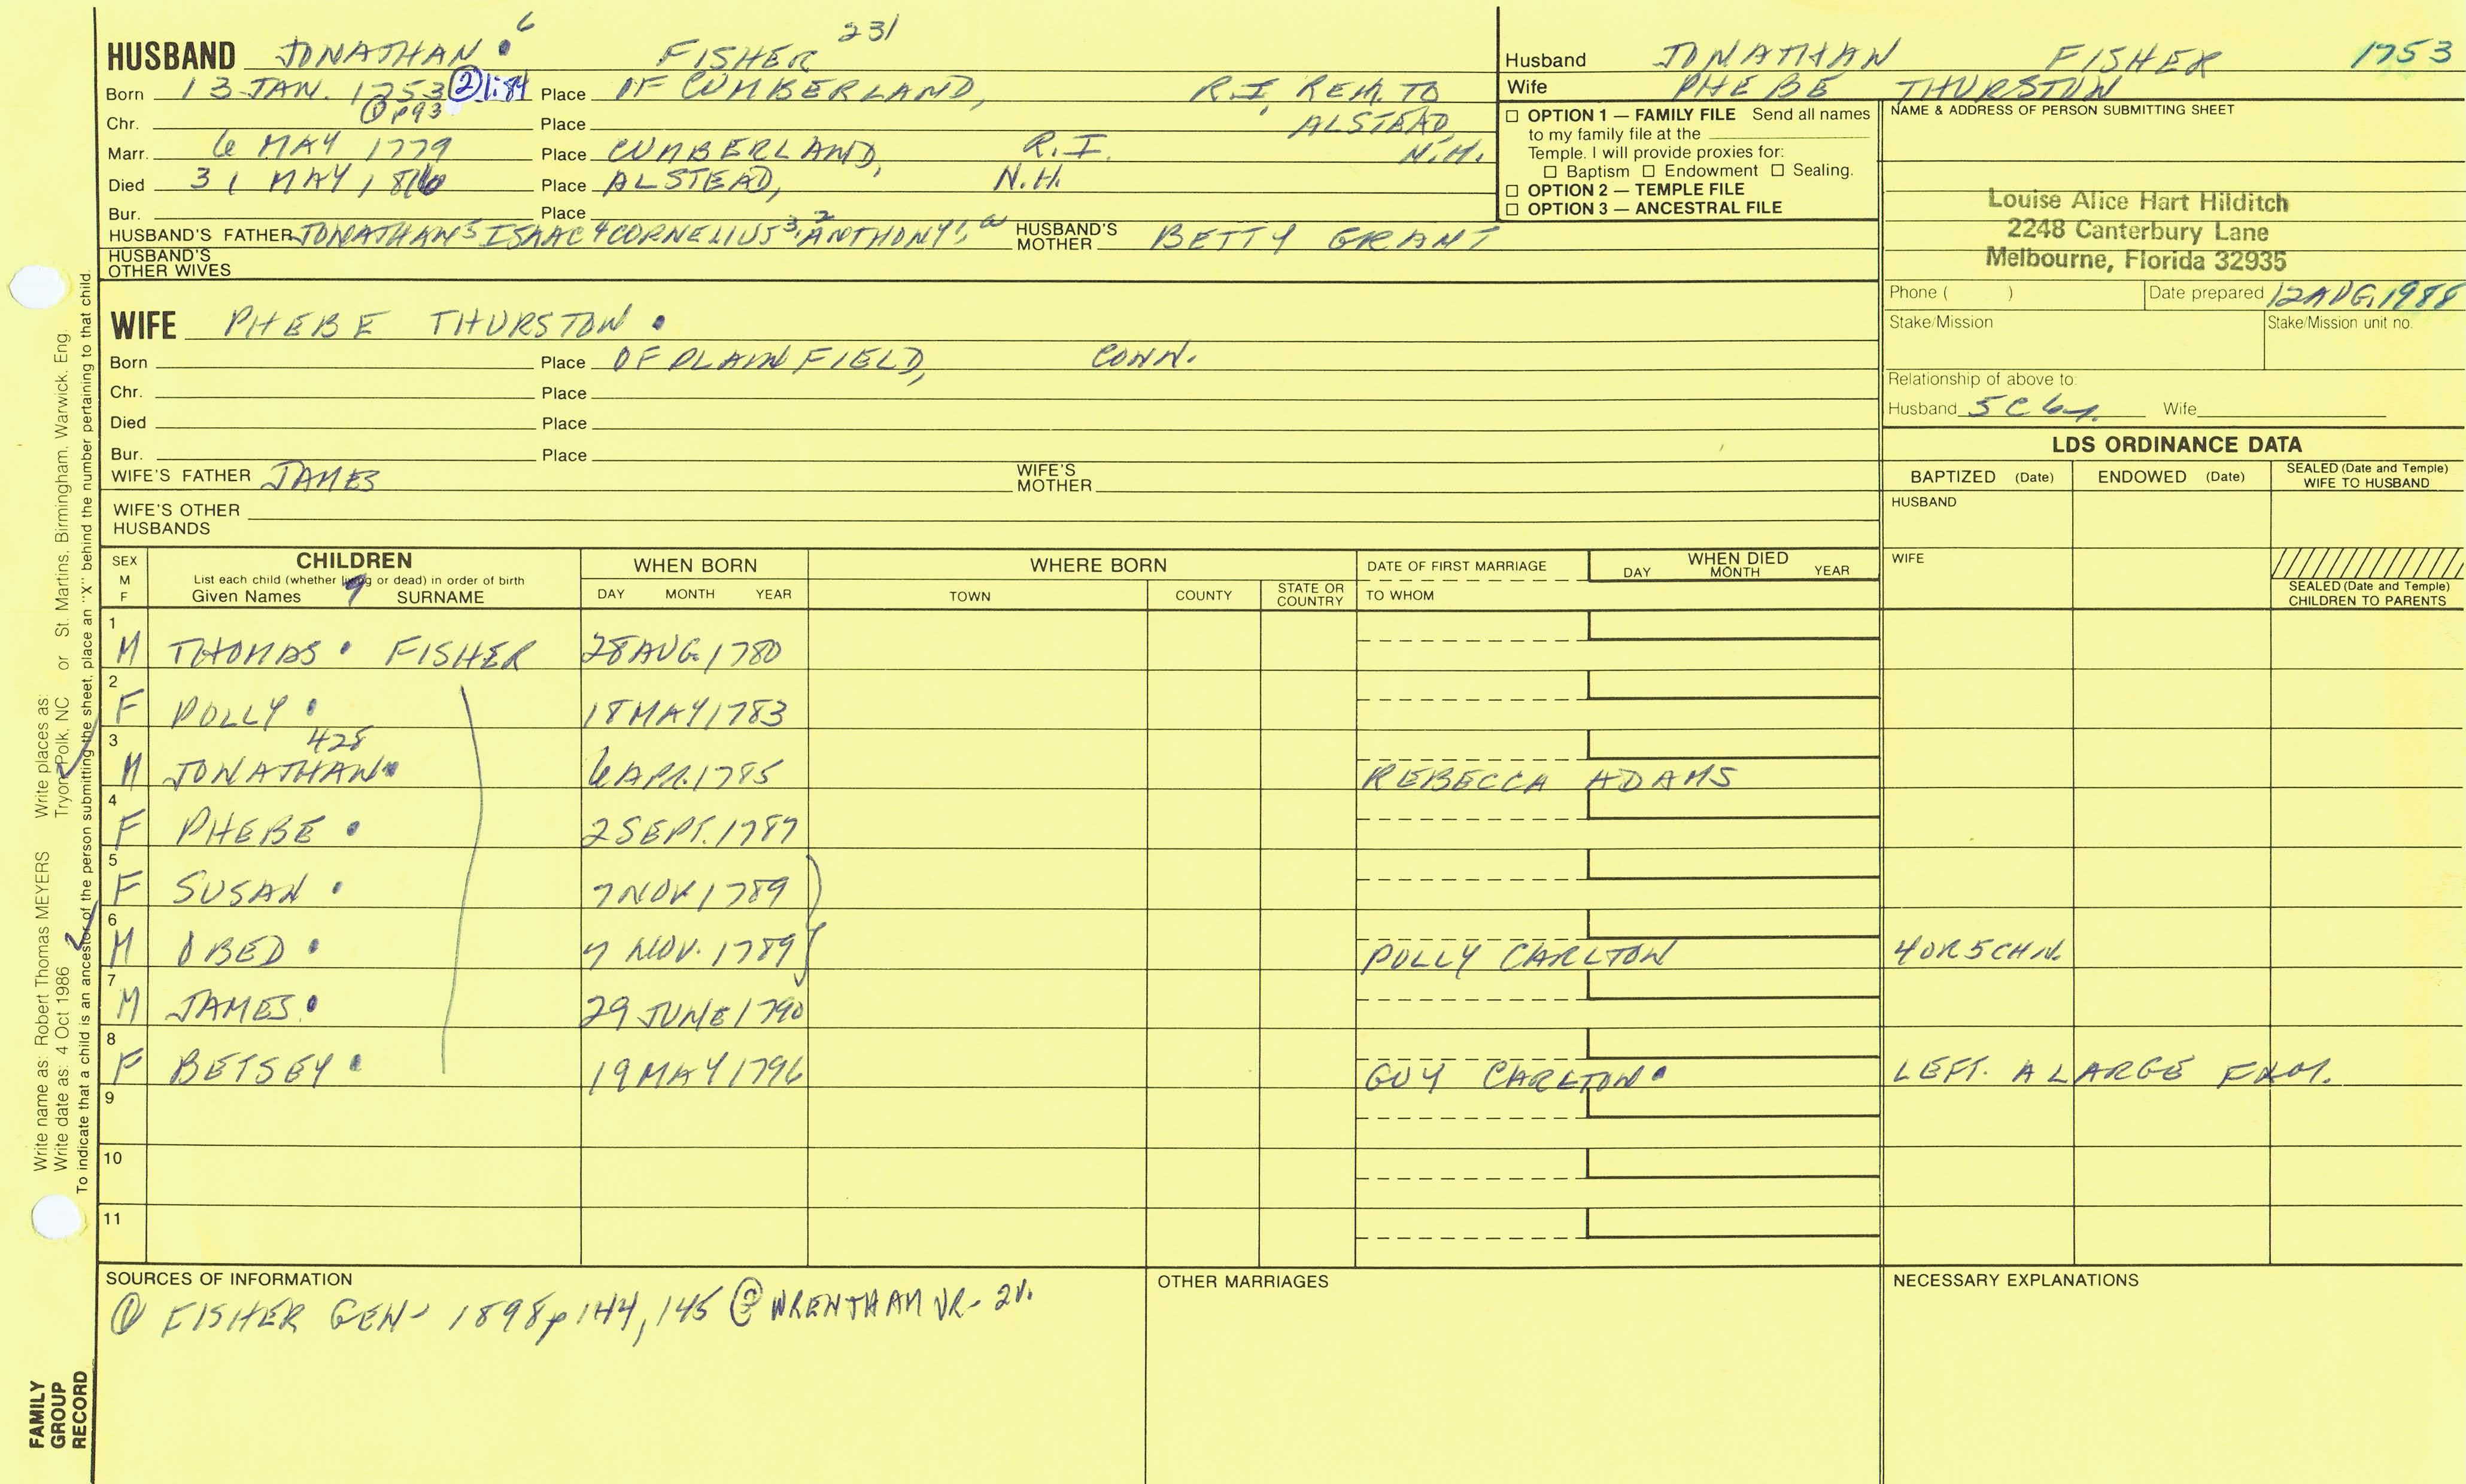 HUSBAND JONATHAN 6 FISHER 231
Born 13 JAN. 1753 ② 1:84 Place OF CUMBERLAND, R.I. REM. TO
① p93
Chr. Place ALSTEAD,
Marr. 6 MAY 1779 Place CUMBERLAND, R.I. N.H.
Died 31 MAY 1816 Place ALSTEAD, N.H.
Bur. Place
HUSBAND'S FATHER JONATHAN 5 ISAAC 4 CORNELIUS 3, ANTHONY 2, HUSBAND'S MOTHER BETTY GRANT
HUSBAND'S OTHER WIVES
WIFE PHEBE THURSTON
Born Place OF PLAINFIELD, CONN.
Chr. Place
Died Place
Bur. Place
WIFE'S FATHER JAMES WIFE'S MOTHER
WIFE'S OTHER HUSBANDS
Husband JONATHAN FISHER 1753
Wife PHEBE THURSTON
☐ OPTION 1 — FAMILY FILE Send all names
to my family file at the
Temple. I will provide proxies for:
☐ Baptism ☐ Endowment ☐ Sealing.
☐ OPTION 2 — TEMPLE FILE
☐ OPTION 3 — ANCESTRAL FILE
NAME & ADDRESS OF PERSON SUBMITTING SHEET
Louise Alice Hart Hilditch
2248 Canterbury Lane
Melbourne, Florida 32935
Phone ( ) Date prepared 12 AUG. 1988
Stake/Mission Stake/Mission unit no.
Relationship of above to:
Husband 5C 6r. Wife
LDS ORDINANCE DATA
BAPTIZED (Date) ENDOWED (Date) SEALED (Date and Temple) WIFE TO HUSBAND
HUSBAND
WIFE
SEALED (Date and Temple) CHILDREN TO PARENTS
SEX M F
CHILDREN
List each child (whether living or dead) in order of birth
Given Names 9 SURNAME
WHEN BORN
DAY MONTH YEAR
WHERE BORN
TOWN COUNTY STATE OR COUNTRY
DATE OF FIRST MARRIAGE
TO WHOM
WHEN DIED
DAY MONTH YEAR
1 M THOMAS FISHER 28 AUG. 1780
2 F POLLY 18 MAY 1783
428
3 M JONATHAN 6 APR. 1785 REBECCA ADAMS
4 F PHEBE 2 SEPT. 1787
5 F SUSAN 7 NOV 1789
6 M OBED 7 NOV. 1789 POLLY CARLTON 4 OR 5 CHN.
7 M JAMES 29 JUNE 1790
8 F BETSEY 19 MAY 1796 GUY CARLTON LEFT. A LARGE FAM.
9
10
11
SOURCES OF INFORMATION
① FISHER GEN- 1898 p 144, 145 ② WRENTHAM VR- 2v.
OTHER MARRIAGES
NECESSARY EXPLANATIONS
Write name as: Robert Thomas MEYERS Write places as: Tryon, Polk, NC or St. Martins, Birmingham, Warwick, Eng.
Write date as: 4 Oct 1986
To indicate that a child is an ancestor of the person submitting the sheet, place an "X" behind the number pertaining to that child.
FAMILY
GROUP
RECORD